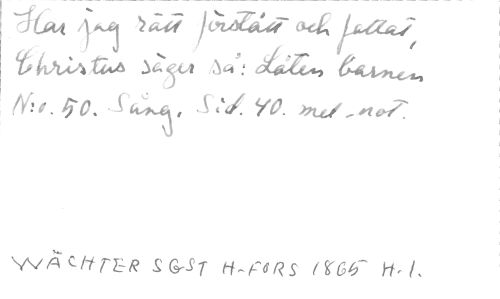 Har jag rätt förstått och fattat,
Christus säger så: Låten barnen
N:o. 50. Sång. Sid. 40. mel-not.
WÄCHTER SGST H-FORS 1865 H.1.